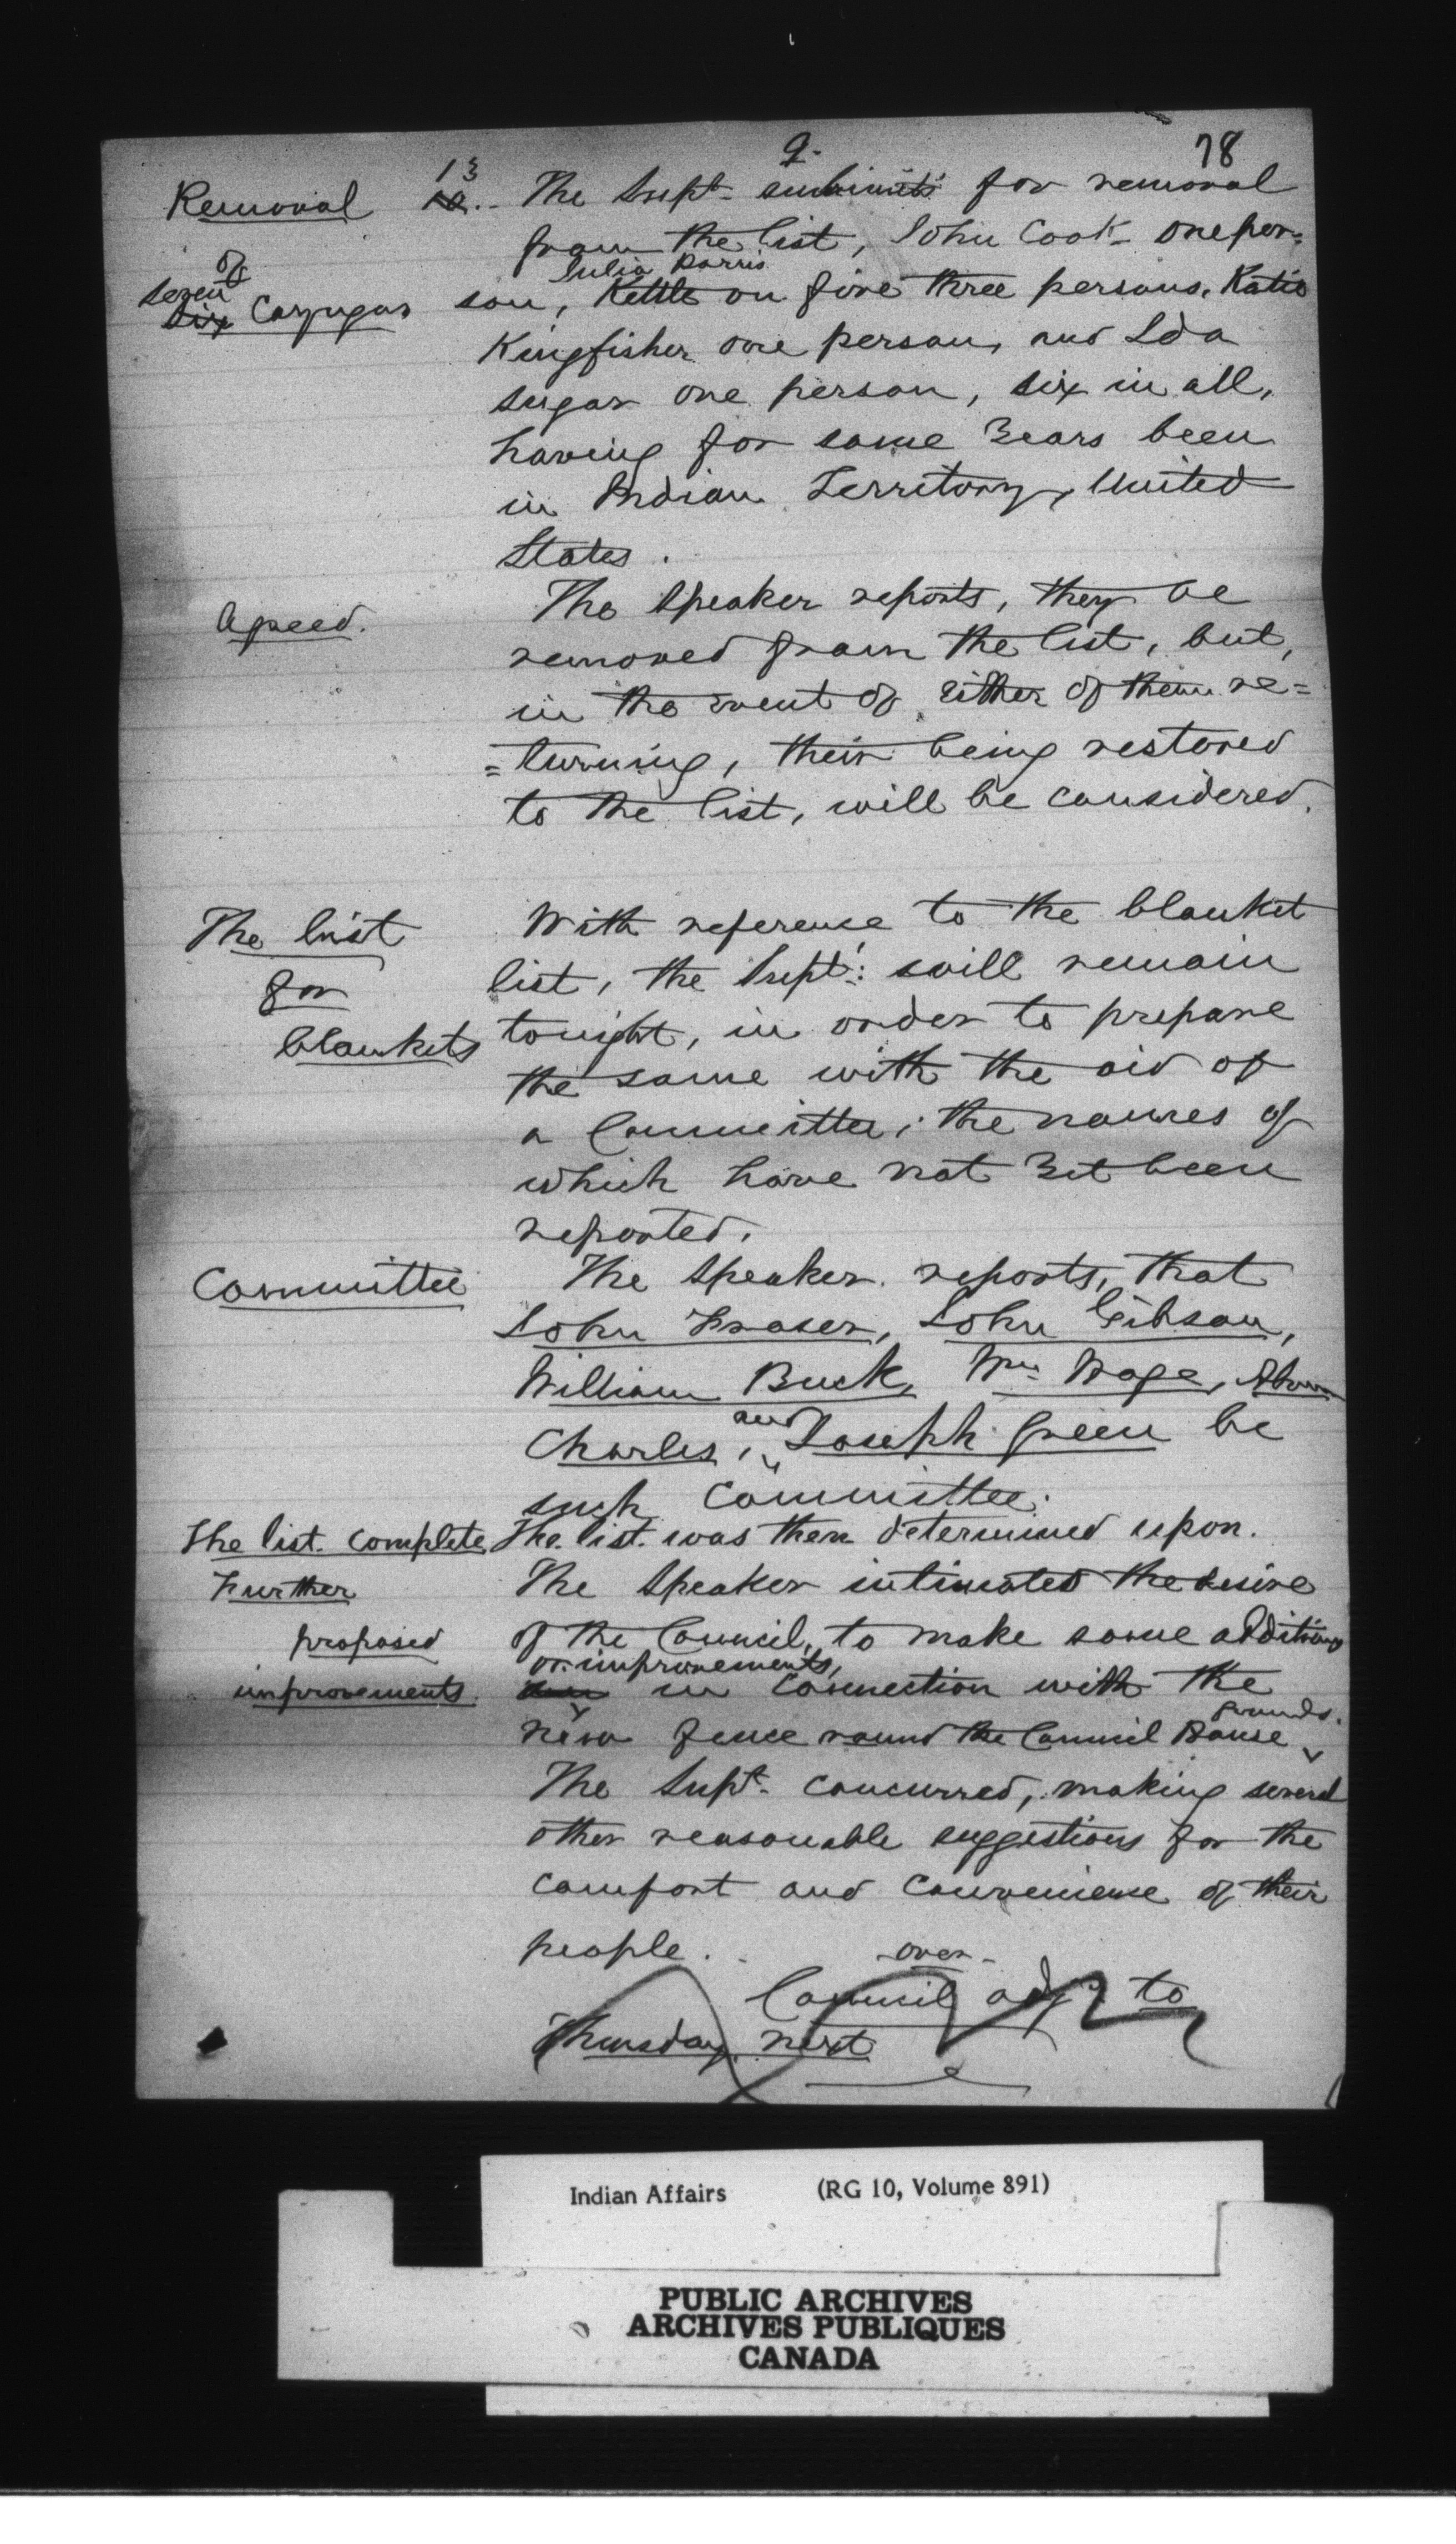 9. 78
Removal 13 The Supt. submits for removal
from the list, John Cook one per=
of Julia Harris
seven Six Cayugas son, Kettle on fire three persons, Katie
Kingfisher one person, and Ida
Sugar one person, six in all,
having for some Years been
in Indian Territory, United
States.
Agreed. The Speaker reports, they be
removed from the list, but,
in the event of either of them re=
=turning, their being restored
to the list, will be considered.
The list With reference to the blanket
for list, the Supt: will remain
blankets tonight, in order to prepare
the same with the aid of
a Committee; the names of
which have not Yet been
reported.
Committee The Speaker reports, that
John Fraser, John Gibson,
William Buck, Wm Wage, Abram
Charles, and Joseph Green be
such Committee.
The list complete The list was then determined upon.
Further The Speaker intimated the desire
proposed of the Council, to make some additions
or improvements,
improvements. in connection with the
new fence round the Council House grounds.
The Supt. concurred, making several
other reasonable suggestions for the
comfort and convenience of their
people. over
Council adj. to
Thursday next
Indian Affairs (RG 10, Volume 891)
PUBLIC ARCHIVES
ARCHIVES PUBLIQUES
CANADA